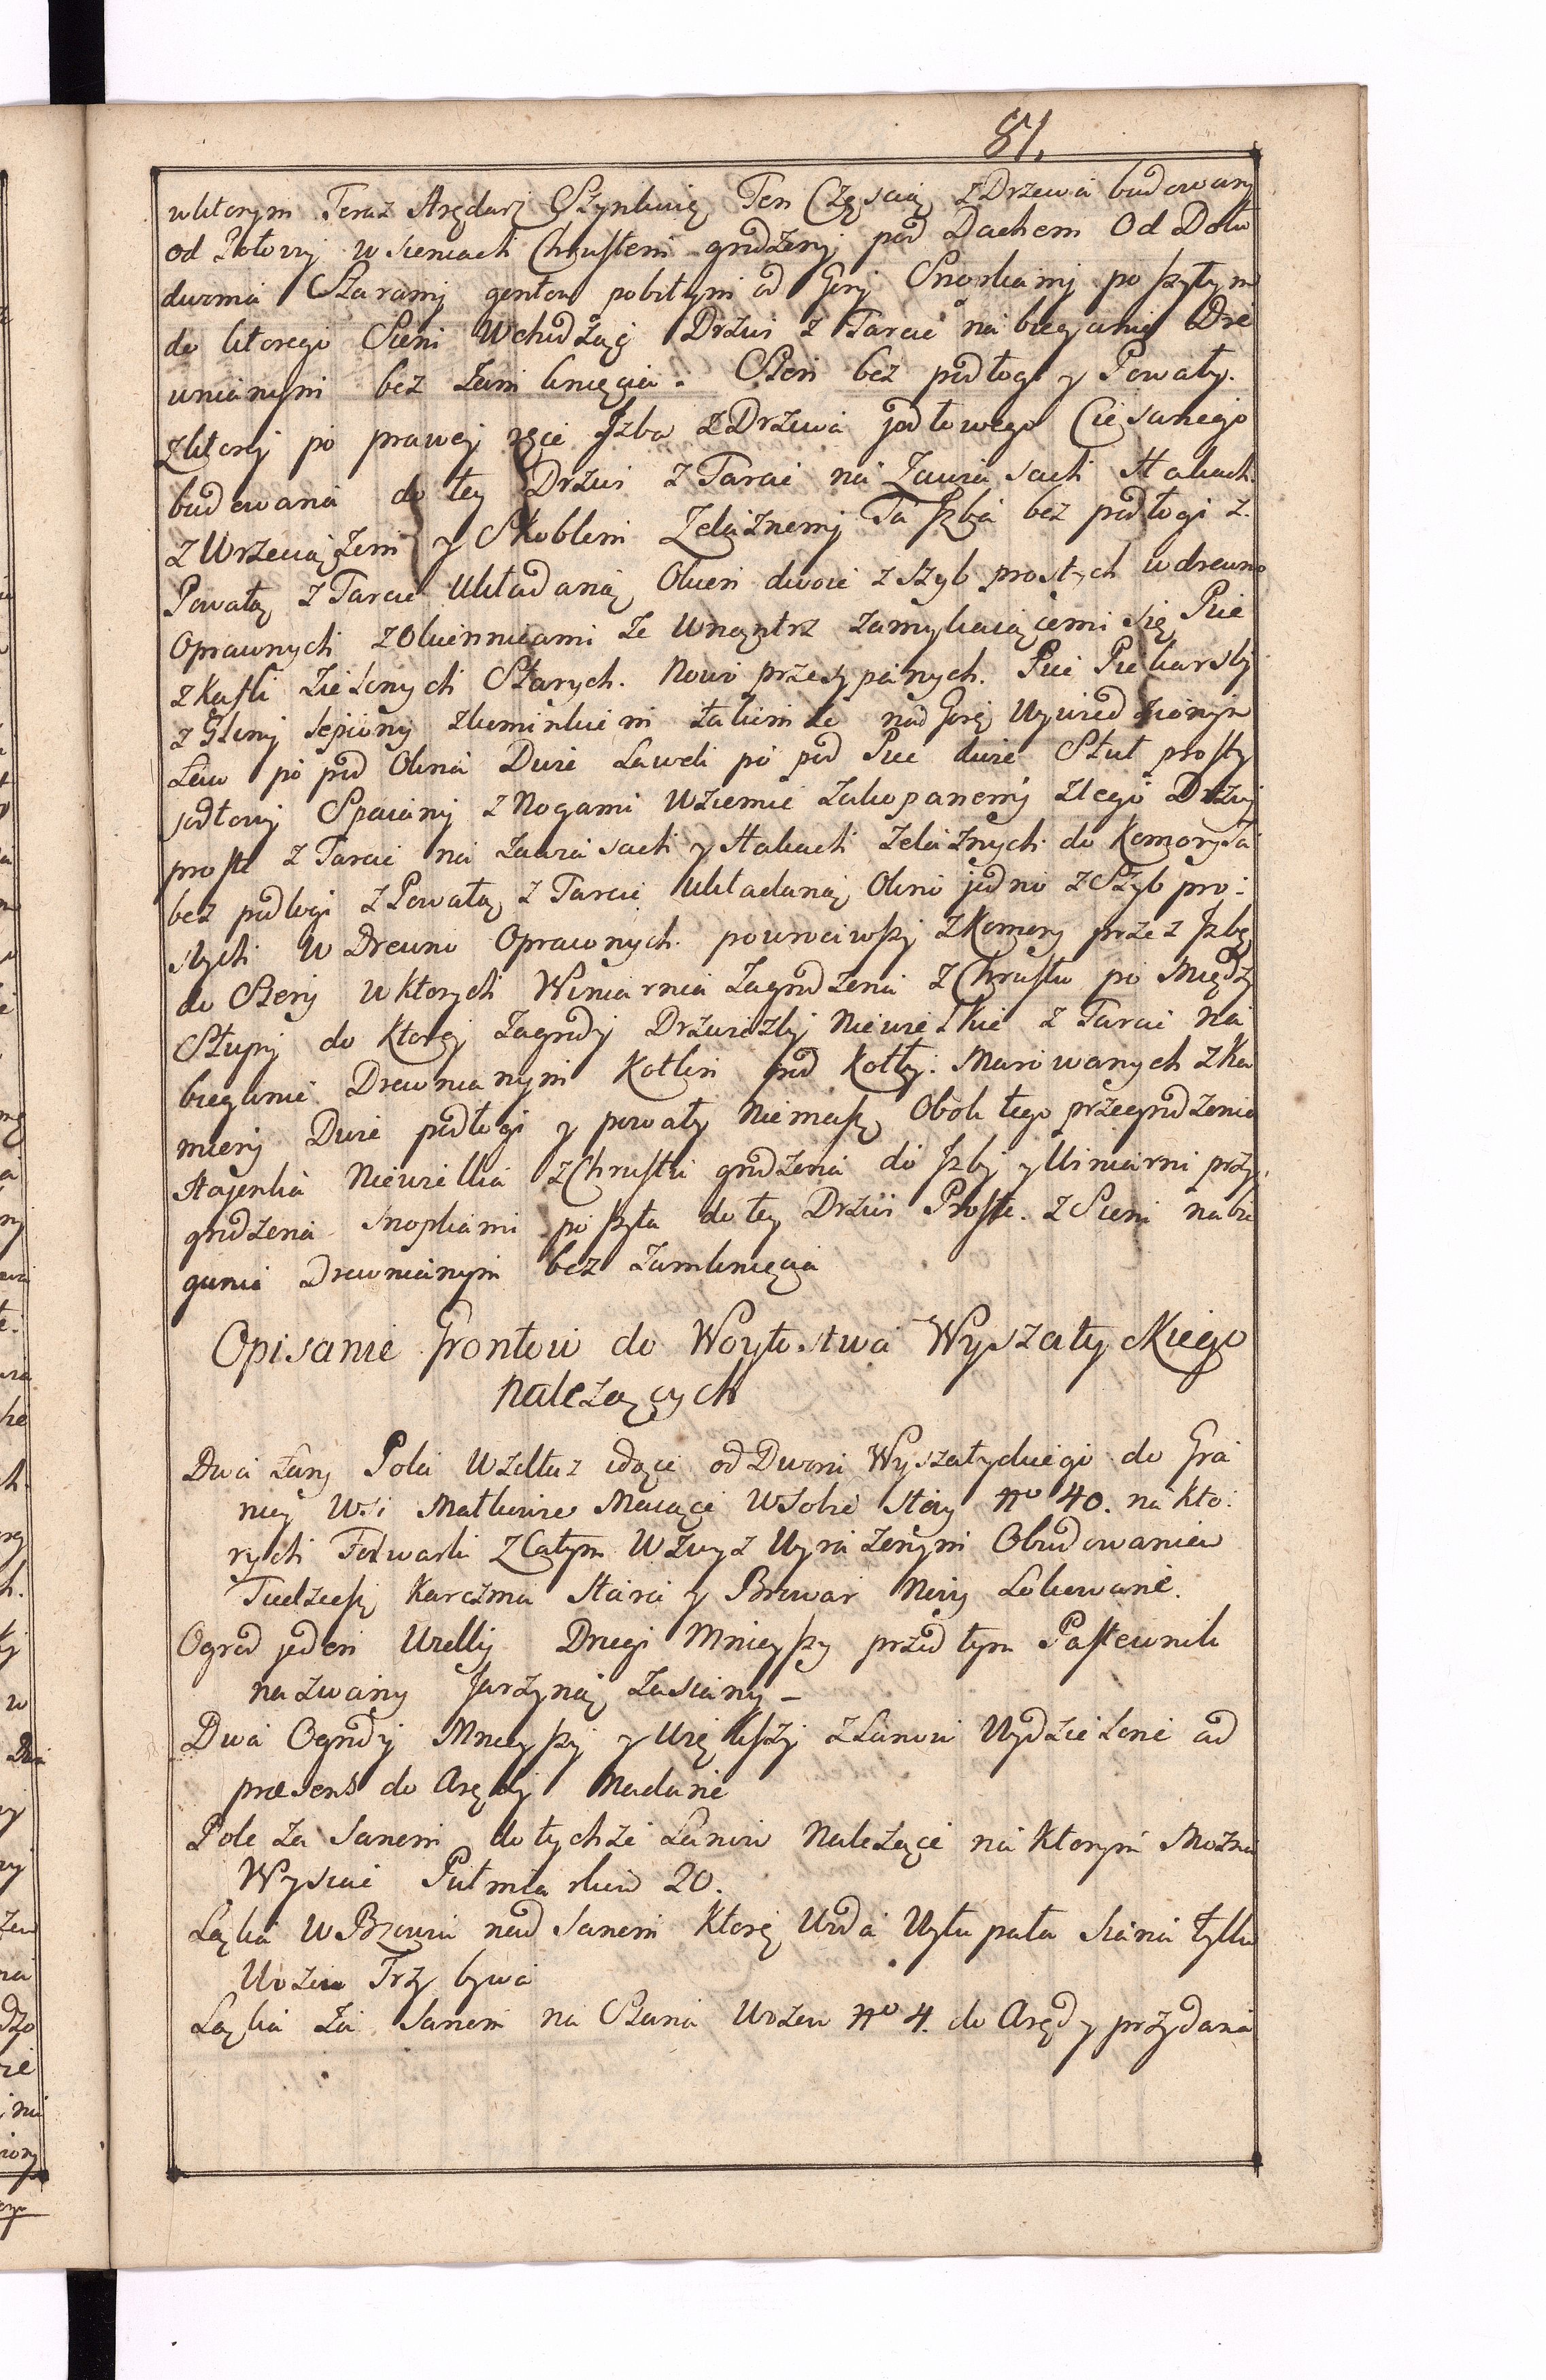 81.
wktorym Teraz Arędarz Szynkuię, Ten Częscią z Drzewa budowany
od Połowy w sieniach Chrustem grodzony pod Dachem Od Dołu
dwoma Szarami gontow pobitym od Gory Snopkami poszytym
do ktorego Sieni Wchodząć Drzwi z Tarcic na biegunie Dre
wnianym bez zamknięcia. Sien bez podłogi y Powały.
zktorej po prawej ręce Jzba z Drzewa jodłowego Ciesanego
budowana do tey Drzwi z Tarcic na Zawiasach Hakach
z Wrzeciążem y Skoblem Zelaznemi Ta Jzba bez podłogi z.
Powałą z Tarcic Układaną Okien dwoie z szyb prostych w drewno
Oprawnych z Okiennicami ze Wnątrz zamykaiącemi się Piec
z Kafli Zielonych Starych. Nowo przesypanych. Piec Piekarski
z Gliny lepiony zkominkiem takimże nad Gorę Wywiedzionym
Ław po pod Okna Dwie Ławek po pod Piec dwie Stuł prosty
jodłowy Spaiany z Nogami W ziemie zakopanemi z tego Drzwi
proste z Tarcic na zawiasach y Hakach żelaznych do Komory Ta
bez podłogi z Powałą z Tarcic Układaną Okno jedno z Szyb pro:
stych w Drewno Oprawnych. powrociwszy z Komory przez Jzbę
do Sieny w ktorych Winiarnia zagrodzona z Chrustu po Między
Słupy do Ktorey zagrody Drzwiczki Niewielkie z Tarcic na
biegunie Drewnianym Kotlin pod Kotły. Murowanych z Ka
mieny Dwie podłogi y powały Niemasz, Obok tego przegrodzenia
Stajenka Niewielka z Chrustu grodzona do Jzby y Winiarni przy
grodzena Snopkami poszyta do tey Drzwi Proste. z Sieni na bie
gunie Drewnianym bez Zamknięcia
Opisanie Grontow do Woytostwa Wyszatyckiego
należących
Dwa Łany Pola Wzdłuz idące od Dworu Wyszatyckiego do Gra
nicy Wsi Małkowice Maiące W sobie Stay No 40. na Kto:
rych Folwark z Całym Wzwyz Wyrażonym Obudowaniem
Tudziesz Karczma Stara y Browar Nowy Lokowane.
Ogrod jeden Wielki Drugi Mnieyszy przed tym Pastewnik
nazwany Jarzyną Zasiany –
Dwa Ogrody Mnieyszy y Większy z Łanow Wydzielone ad
praesens do Arędy Nadane
Pole za Sanem do tychże Łanow Należące na Ktorym Można
Wysiać Pułmiarkow 20.
Łąka W Brzegu nad Sanem Ktorą Woda Siana tylko
Wozow Trzy bywa
Łąka Za Sanem na Siana Wozow No 4. do Arędy przydana